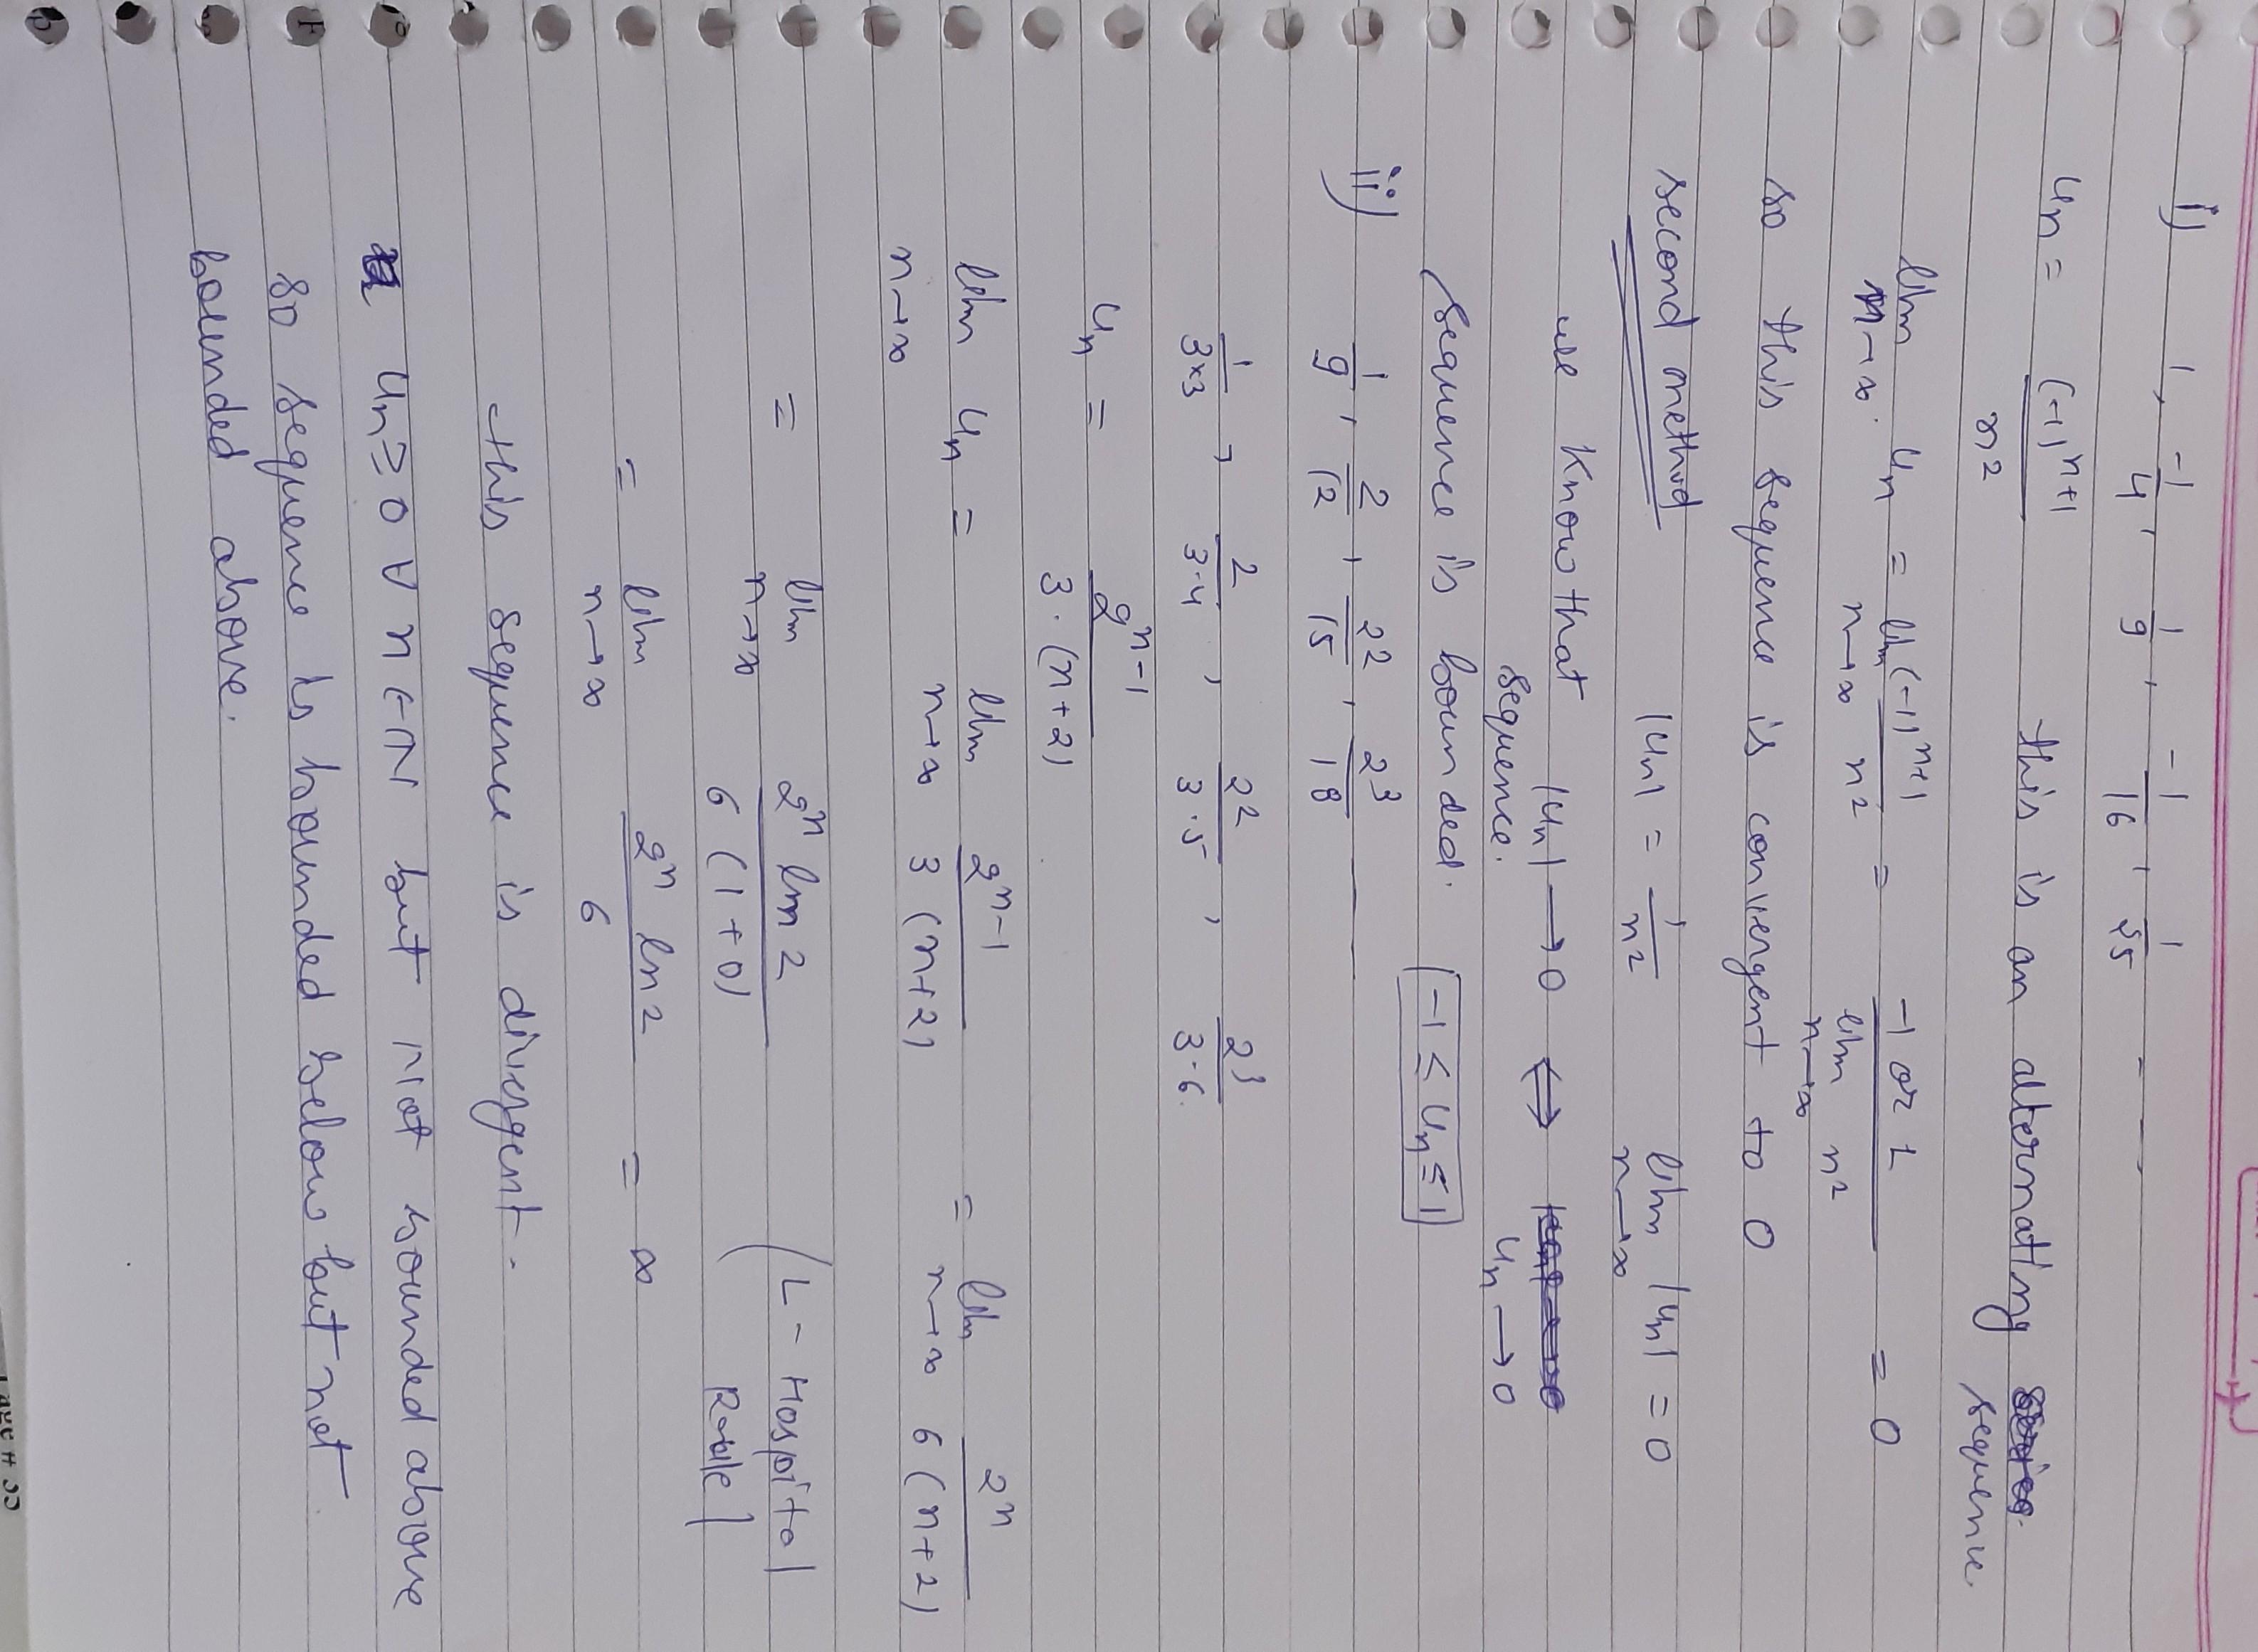 i) 1, -1/4, 1/9, -1/16, 1/25 - - -
un = (-1)^n+1 / n^2 this is an alternating
sequence.
lim n→∞ un = lim n→∞ (-1)^n+1 / n^2 = -1 or 1 / lim n→∞ n^2 = 0
so this sequence is convergent to 0
second method |un| = 1/n^2 lim n→∞ |un| = 0
we know that |un| → 0 ⇔
sequence. un → 0
sequence is bounded. [-1 ≤ un ≤ 1]
ii) 1/9, 2/12, 2^2/15, 2^3/18
1/3×3, 2/3·4, 2^2/3·5, 2^3/3·6.
un = 2^n-1 / 3·(n+2)
lim n→∞ un = lim n→∞ 2^n-1 / 3(n+2) = lim n→∞ 2^n / 6(n+2)
= lim n→∞ 2^n ln 2 / 6(1+0) (L-Hospital
Rule)
= lim n→∞ 2^n ln 2 / 6 = ∞
this sequence is divergent.
un ≥ 0 ∀ n ∈ N but not bounded above
so sequence is bounded below but not
bounded above.